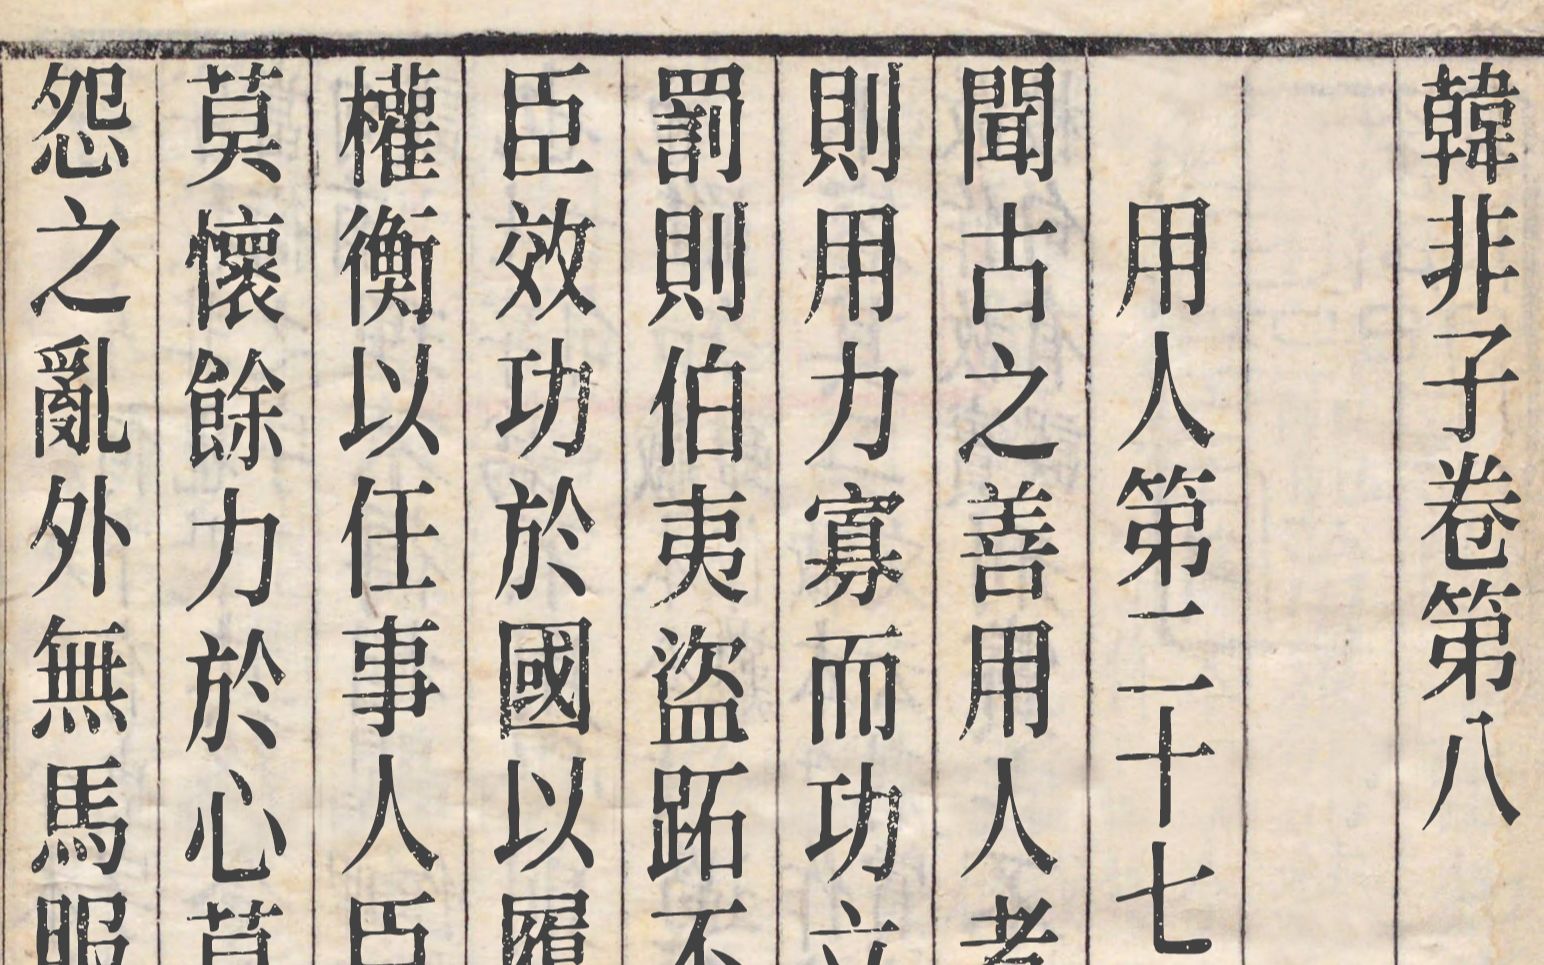 韓非子卷第八
用人第二十七
聞古之善用人者
則用力寡而功立
罰則伯夷盜跖不
臣效功於國以履
權衡以任事人臣
莫懷餘力於心莫
怨之亂外無馬服